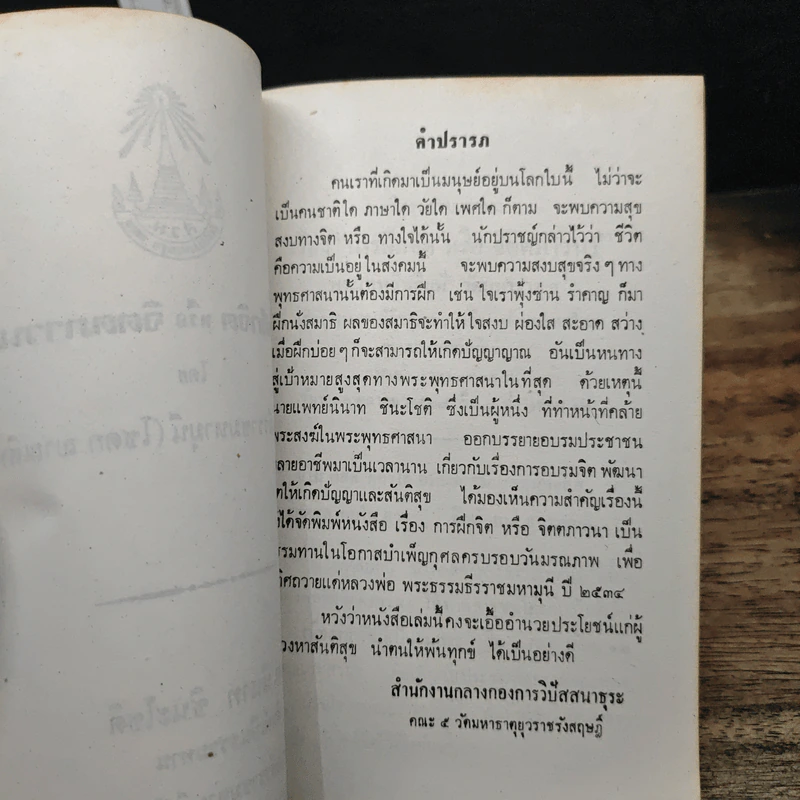 คำปรารภ
คนเราที่เกิดมาเป็นมนุษย์อยู่บนโลกใบนี้ ไม่ว่าจะ
เป็นคนชาติใด ภาษาใด วัยใด เพศใด ก็ตาม จะพบความสุข
สงบทางจิต หรือ ทางใจได้นั้น นักปราชญ์กล่าวไว้ว่า ชีวิต
คือความเป็นอยู่ในสังคมนี้ จะพบความสงบสุขจริง ๆ ทาง
พุทธศาสนานั้นต้องมีการฝึก เช่น ใจเราฟุ้งซ่าน รำคาญ ก็มา
ฝึกนั่งสมาธิ ผลของสมาธิจะทำให้ใจสงบ ผ่องใส สะอาด สว่าง
เมื่อฝึกบ่อย ๆ ก็จะสามารถให้เกิดปัญญาญาณ อันเป็นหนทาง
สู่เป้าหมายสูงสุดทางพระพุทธศาสนาในที่สุด ด้วยเหตุนี้
นายแพทย์นินาท ชินะโชติ ซึ่งเป็นผู้หนึ่ง ที่ทำหน้าที่คล้าย
พระสงฆ์ในพระพุทธศาสนา ออกบรรยายอบรมประชาชน
ลายอาชีพมาเป็นเวลานาน เกี่ยวกับเรื่องการอบรมจิต พัฒนา
ตให้เกิดปัญญาและสันติสุข ได้มองเห็นความสำคัญเรื่องนี้
งได้จัดพิมพ์หนังสือ เรื่อง การฝึกจิต หรือ จิตตภาวนา เป็น
รรมทานในโอกาสบำเพ็ญกุศลครบรอบวันมรณภาพ เพื่อ
ทิศถวายแด่หลวงพ่อ พระธรรมธีรราชมหามุนี ปี ๒๕๓๔
หวังว่าหนังสือเล่มนี้คงจะเอื้ออำนวยประโยชน์แก่ผู้
วงหาสันติสุข นำตนให้พ้นทุกข์ ได้เป็นอย่างดี
สำนักงานกลางกองการวิปัสสนาธุระ
คณะ ๕ วัดมหาธาตุยุวราชรังสฤษฎิ์